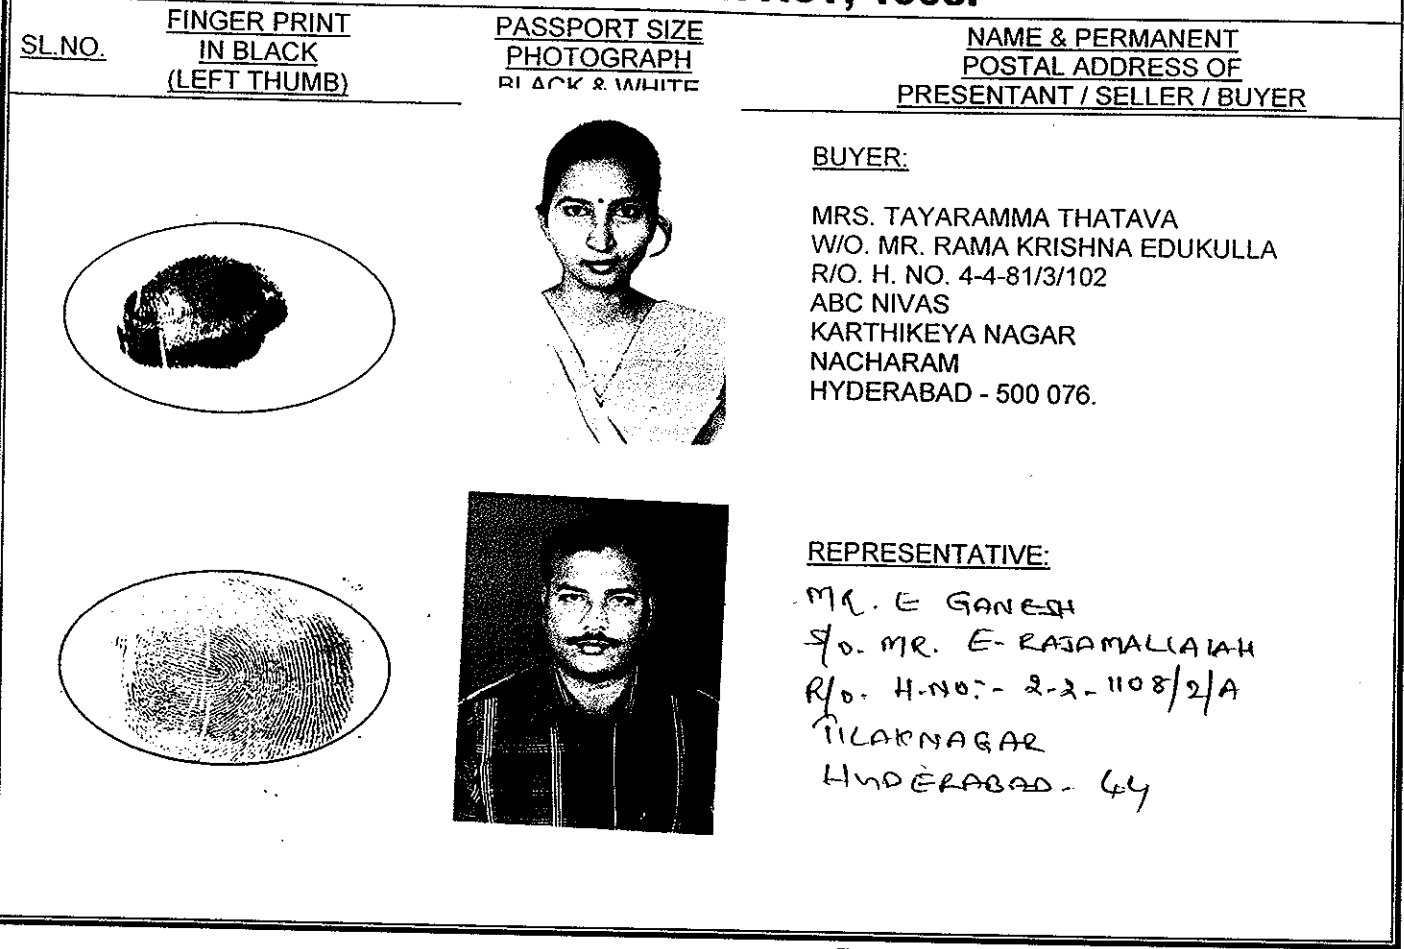 SL.NO.
FINGER PRINT
IN BLACK
(LEFT THUMB)
PASSPORT SIZE
PHOTOGRAPH
BLACK & WHITE
NAME & PERMANENT
POSTAL ADDRESS OF
PRESENTANT / SELLER / BUYER
BUYER:
MRS. TAYARAMMA THATAVA
W/O. MR. RAMA KRISHNA EDUKULLA
R/O. H. NO. 4-4-81/3/102
ABC NIVAS
KARTHIKEYA NAGAR
NACHARAM
HYDERABAD - 500 076.
REPRESENTATIVE:
MR. E GANESH
S/o. MR. E. RAJAMALLAIAH
R/o. H.NO:- 2-2-1108/2/A
TILAKNAGAR
HYDERABAD- 44